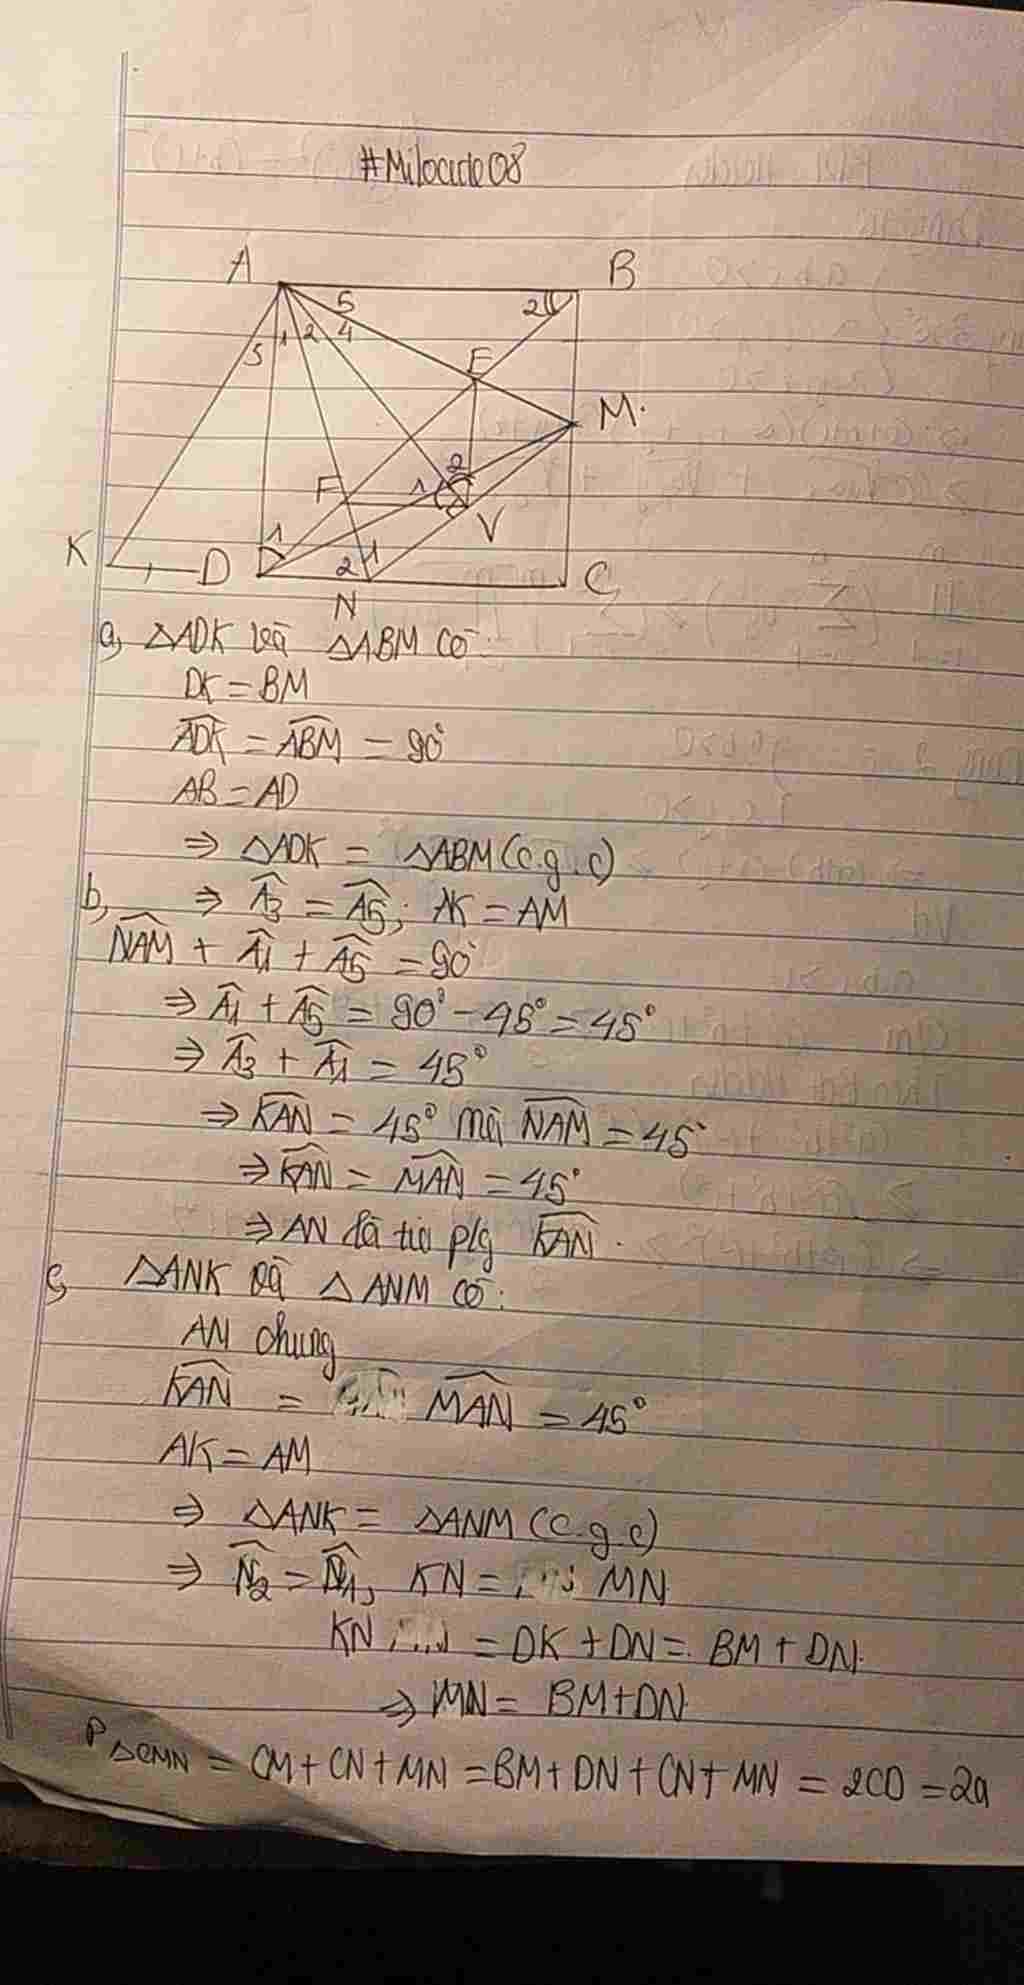 #Milocute08
A
B
5
2
1 2 4
3
E
M.
2
F
1
V
K
D
1
2 1
C
N
a, △ADK và △ABM có:
DK = BM
ADK = ABM = 90°
AB = AD
⇒ △ADK = △ABM (c.g.c)
b, ⇒ A3 = A5; AK = AM
NAM + A1 + A5 = 90°
⇒ A1 + A5 = 90° - 45° = 45°
⇒ A3 + A1 = 45°
⇒ KAN = 45° mà NAM = 45°
⇒ KAN = MAN = 45°
⇒ AN là tia p/g KAN.
c, △ANK và △ANM có:
AN chung
KAN = MAN = 45°
AK = AM
⇒ △ANK = △ANM (c.g.c)
⇒ N2 = N1, KN = MN
KN = DK + DN = BM + DN.
⇒ MN = BM + DN
P△CMN = CM + CN + MN = BM + DN + CN + MN = 2CD = 2a